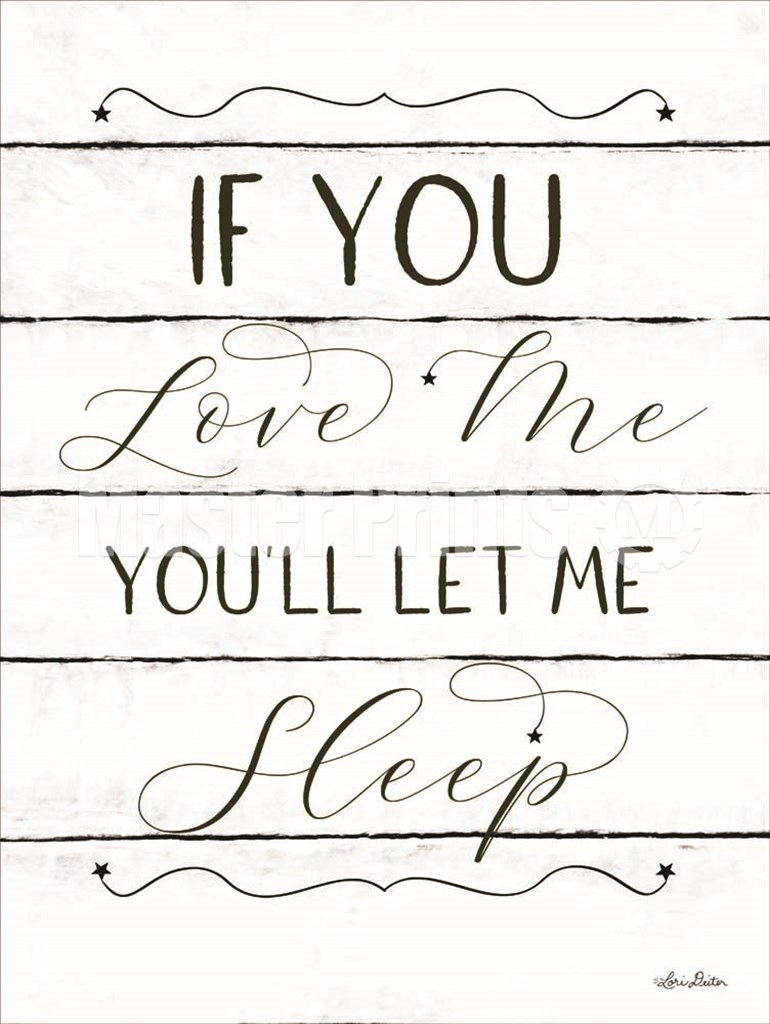 IF YOU
Love Me
Master Prints
YOU'LL LET ME
Sleep
©Lori Deiter